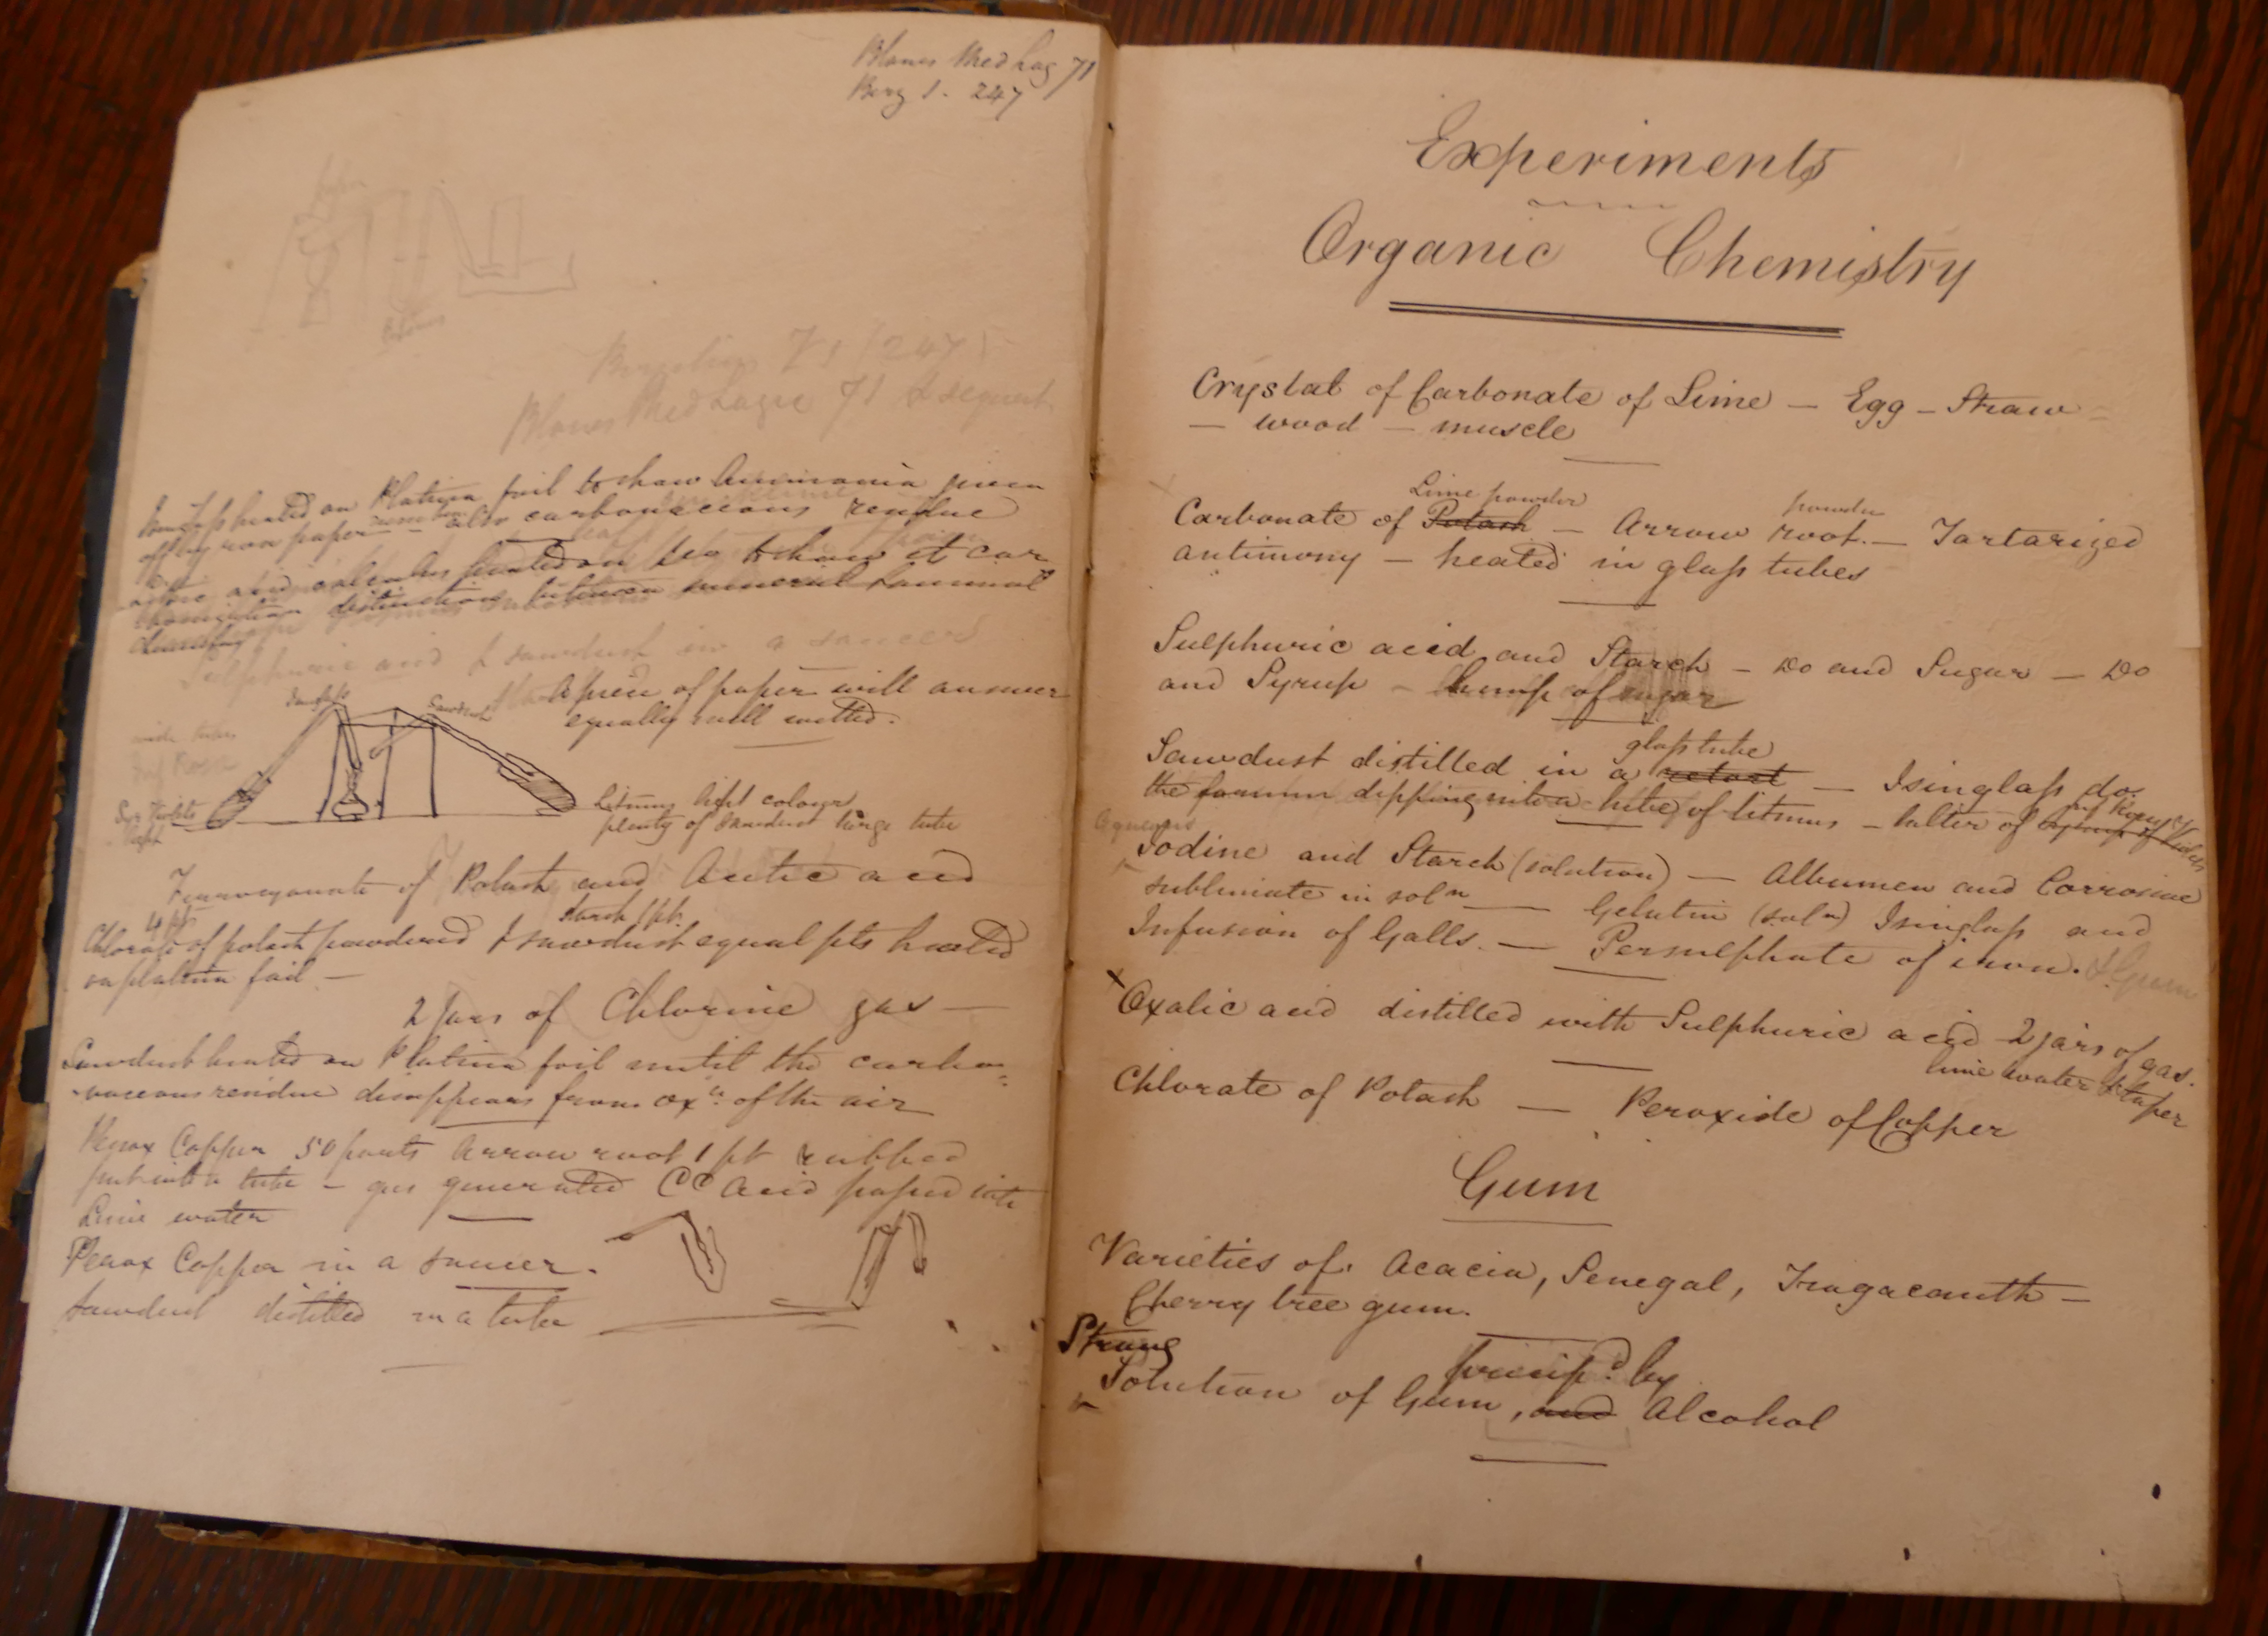 Blanes Med Log 71
Berz 1. 247
Berzelius 71 (247)
Blanes Med Logic 71 & sequent
Isinglass heated on Platina foil to shew Ammonia given
off by rose paper also carbonaceous residue
acid calculus heated on do to shew it car
distinction between mineral & animal
Sulphuric acid & sawdust in a saucer
A piece of paper will answer
equally well wetted.
Isinglass
Sawdust
wide tubes
Inf Rose
Syr Violets
light
Litmus light colour
plenty of sawdust large tube
Ferrocyanate of Potash and Acetic acid
4 pts
starch 1 pt.
Chlorate of potash powdered & sawdust equal pts heated
on platina foil —
2 Jars of Chlorine gas —
Sawdust heated on Platina foil until the carbo-
-naceous residue disappears from oxn of the air
Perox Copper 50 parts Arrow root 1 pt rubbed
put into a tube — gas generated CC Acid passed into
Lime water
Perox Copper in a saucer.
Sawdust distilled in a tube
Experiments
Organic Chemistry
Crystal of Carbonate of Lime — Egg — Straw —
— wood — muscle
Lime powder
powder
Carbonate of Potash — Arrow root. — Tartarized
antimony — heated in glass tubes
Sulphuric acid and Starch — Do and Sugar — Do
and Syrup — Lump of sugar
glass tube
Sawdust distilled in a retort — Isinglass do.
the former dipping into a tube of litmus — latter of syrup of Violets
inf Roses
Aqueous
Iodine and Starch (solution) — Albumen and Corrosive
sublimate in soln — Gelatin (soln) Isinglass and
Infusion of Galls. — Persulphate of iron. & Gum
x Oxalic acid distilled with Sulphuric acid 2 jars of gas.
lime water & taper
Chlorate of Potash — Peroxide of Copper
Gum
Varieties of. Acacia, Senegal, Tragacanth —
Cherry tree gum.
Strong
precipd. by
Solution of Gum, and Alcohol